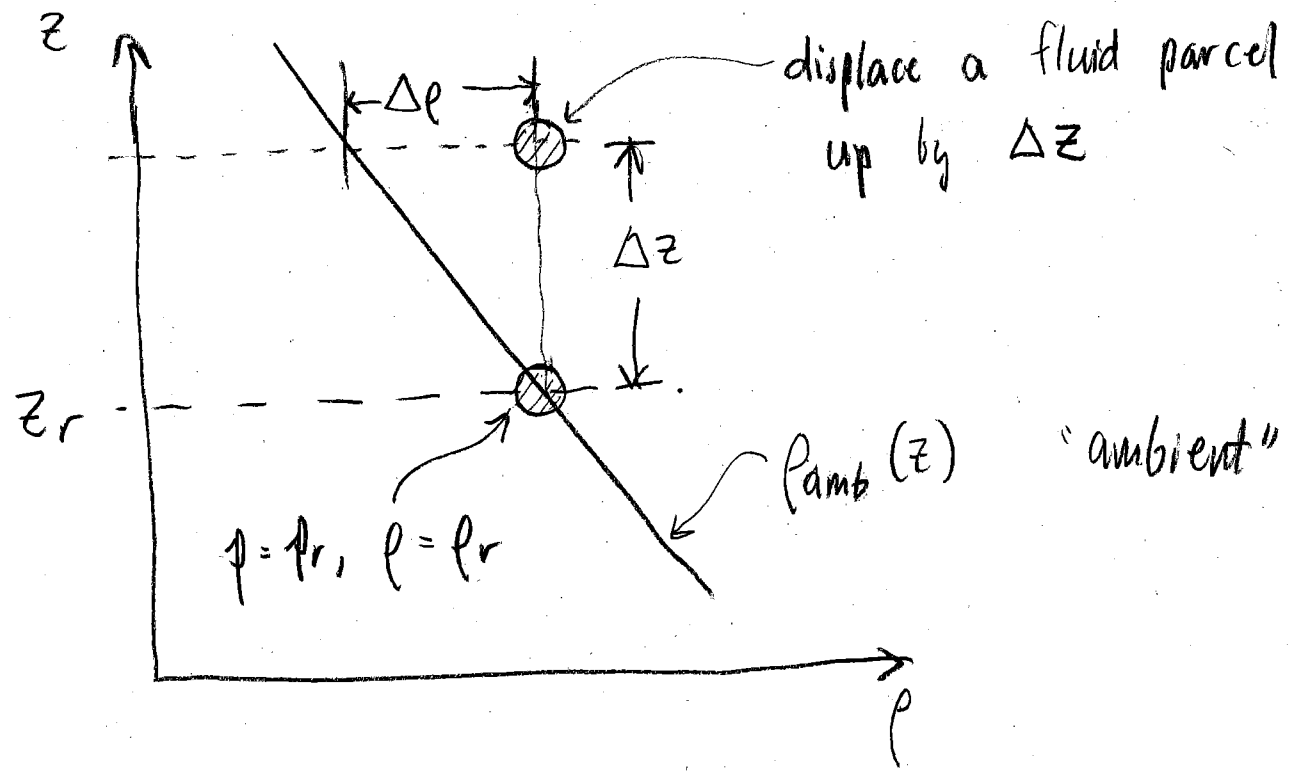 z
Δρ
displace a fluid parcel
up by Δz
Δz
z_r
ρ_amb (z) "ambient"
p = p_r, ρ = ρ_r
ρ